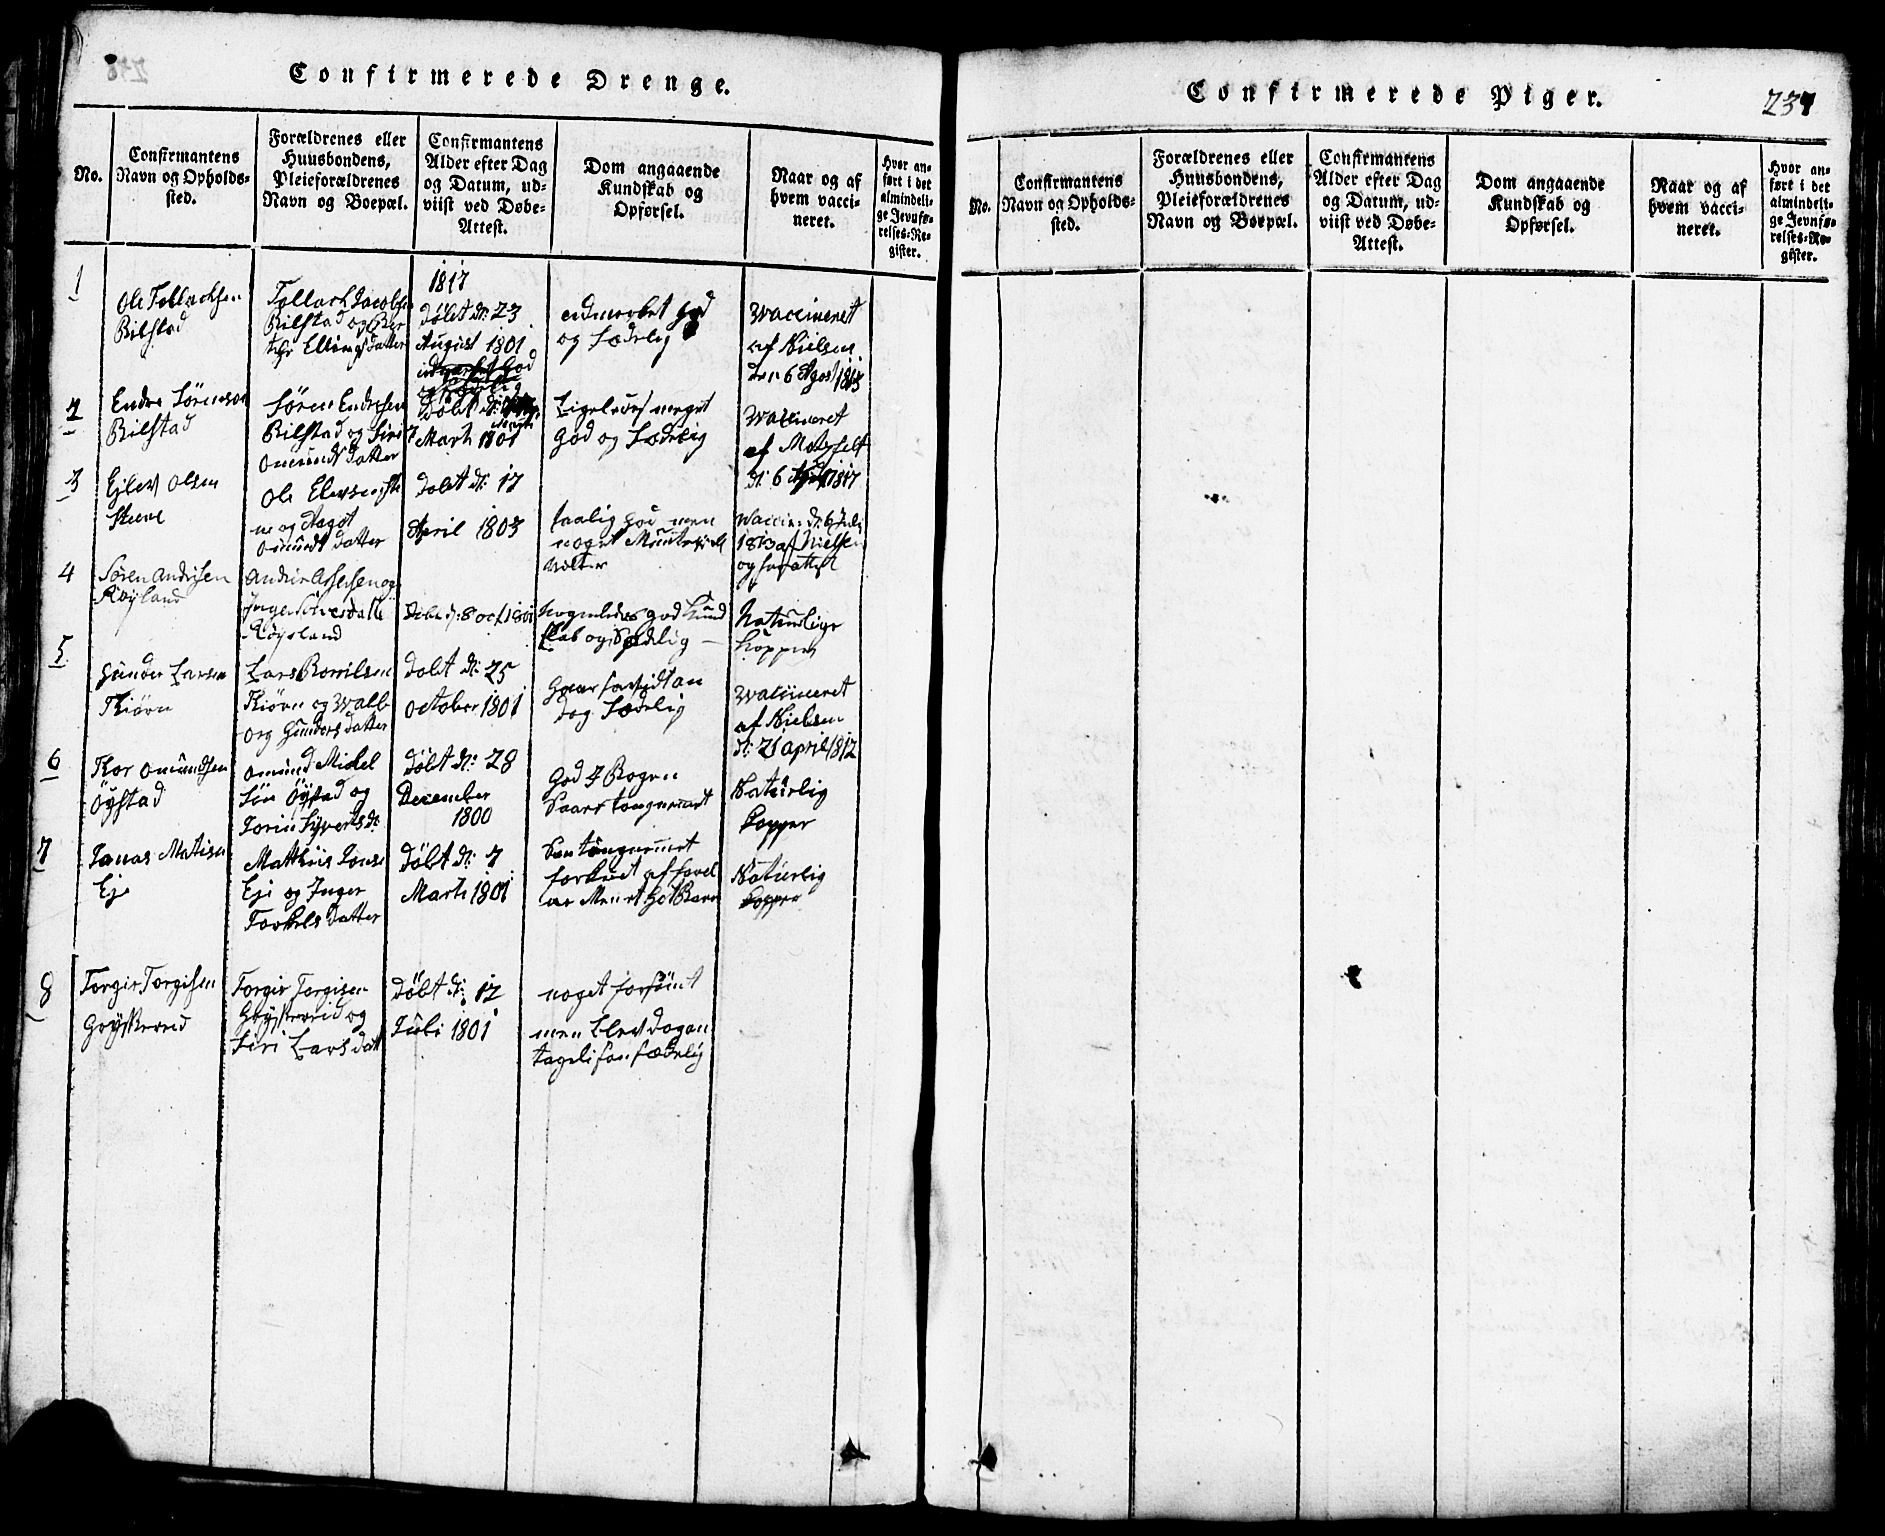 Confirmerede Drenge.
No.
Confirmantens
Navn og Opholds-
sted.
Forældrenes eller
Huusbondens,
Pleieforældrenes
Navn og Boepæl.
Confirmantens
Alder efter Dag
og Datum, ud-
viist ved Døbe-
Attest.
Dom angaaende
Kundskab og
Opførsel.
Naar og af
hvem vacci-
neret.
Hvor an-
ført i det
almindeli-
ge Jevnfø-
relses-Re-
gister.
1817
1
Ole Tollachsen
Bilstad
Tollach Jacobsen
Bilstad og Ber
the Ellings datter
döbt d: 23
August 1801
udmerket god
og Sædelig
Waccineret
af Nielsen
den 6 Agost 1813
2
Endre Sörensen
Bilstad
Sören Endresen
Bilstad og Siri
Omunds datter
Döbt d:
7 Marti 1801
Ligeledes meget
God og Sædelig
Waccineret
af Motzfelt
d: 6 1817
3
Ejlev Olsen
Steene
Ole Elevsen Ste
ne og Aagot
Omunds datter
Dobt d: 17
April 1803
taalig god men
noget
Waccin: d: 6 Juli
1813 af Nielsen
4
Sören Andrisen
Röyland
Andrie Assersen og
Röysland
Döbt d: 8 oct 1801
Nogenledes god Kund
skab og Sædelig —
Naturlige
Kopper
5
Gunder Larsen
Tkiörn
Lars Borrilsen
Tkiörn og Walb
org Gunders datter
Dobt d: 25
October 1801
dog Sædelig
Wacciineret
af Nielsen
d: 21 april 1812
6
Thor Omundsen
Öÿstad
Omund Mickel
Sön Öÿstad og
Torin Syverts d:
Döbt d: 28
December
1800
God I Bogen
Saare tungnemt
Naturlig
Kopper
7
Jonas Matisen
Eje
Matthiis Jonse
Eje og Inger
Torkels datter
Döbt d: 7
Marti 1801
tungnemt
Naturlig
Kopper
8
Torgier Torgisen
Torgier Torgisen
og
Siri Lars datt
Döbt d: 12
Juli 1801
noget forsömt
men blev dog an
tageli san sædelig
Confirmerede Piger.
237
No.
Confirmantens
Navn og Opholds-
sted.
Forældrenes eller
Huusbondens,
Pleieforældrenes
Navn og Boepæl.
Confirmantens
Alder efter Dag
og Datum, ud-
viist ved Døbe-
Attest.
Dom angaaende
Kundskab og
Opførsel.
Naar og af
hvem vacci-
neret.
Hvor an-
ført i det
almindeli-
ge Jevnfø-
relses-Re-
gister.